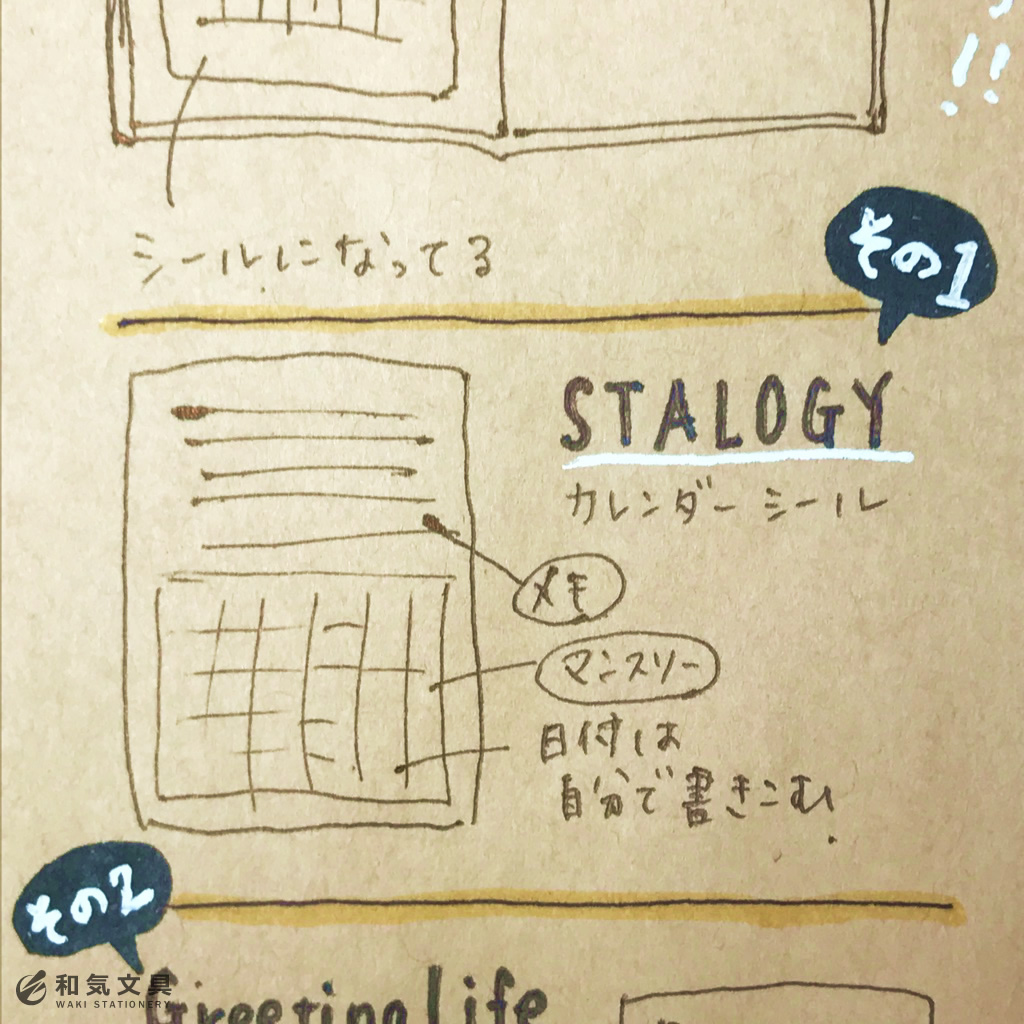 !!
シールになってる
その1
STALOGY
カレンダーシール
メモ
マンスリー
日付は
自分で書きこむ.
その2
Greeting Life
和気文具
WAKI STATIONERY